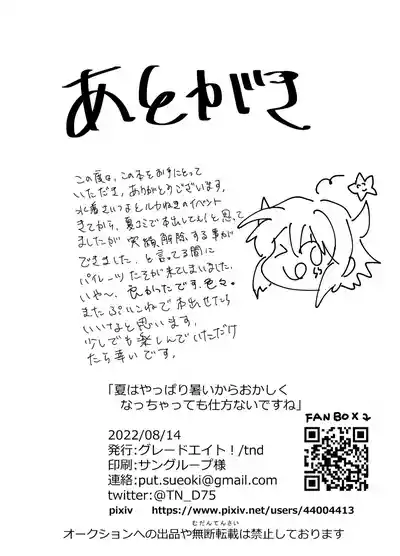 あとがき
この度は、この本をお手にとって
いただき、ありがとうございます。
水着さいつよとルカねきのイベント
きてから、夏コミで本出してぇ!と思って
ましたが 実績解除する事が
できました。と言ってる間に
パイレーツたるが来てしまいました。
いや〜、良かったです。色々。
またぷいこねで本出せたら
いいなと思います。
少しでも楽しんでいただけ
たら幸いです。
「夏はやっぱり暑いからおかしく
なっちゃっても仕方ないですね」
FANBOX
2022/08/14
発行:グレードエイト!/tnd
印刷:サングループ様
連絡:put.sueoki@gmail.com
twitter:@TN_D75
pixiv https://www.pixiv.net/users/44004413
むだんてんさい
オークションへの出品や無断転載は禁止しております